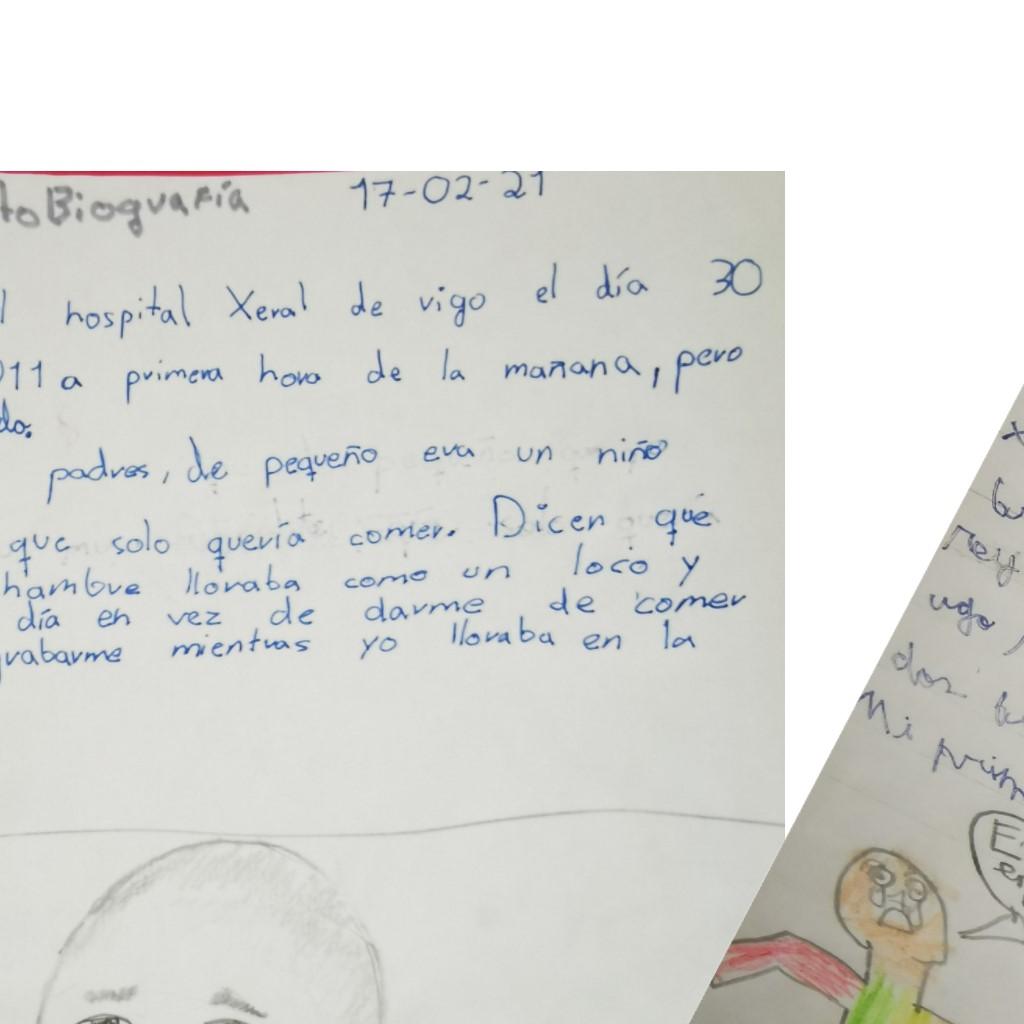 toBiografía 17-02-21
l hospital Xeral de vigo el día 30
011 a primera hora de la mañana, pero
do.
padres, de pequeño era un niño
que solo quería comer. Dicen que
hambre lloraba como un loco y
día en vez de darme de comer
grabarme mientras yo lloraba en la
rey
ugo
dos
Mi prim